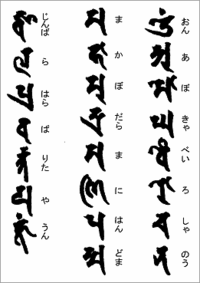 おん あ ぼ きゃ べい ろ しゃ のう
𑖌𑖼 𑖀 𑖦𑖺 𑖑 𑖪𑖹 𑖨𑖺 𑖓 𑖡
ま か ぼ だら ま に はん どま
𑖦 𑖮𑖯 𑖦𑖲 𑖟𑖿𑖨𑖯 𑖦 𑖜𑖰 𑖢 𑖟𑖿𑖦
じんば ら はら ば りた や うん
𑖕𑖿𑖪 𑖩 𑖢𑖿𑖨 𑖪 𑖨𑖿𑖝 𑖧 𑖮𑖳𑖽